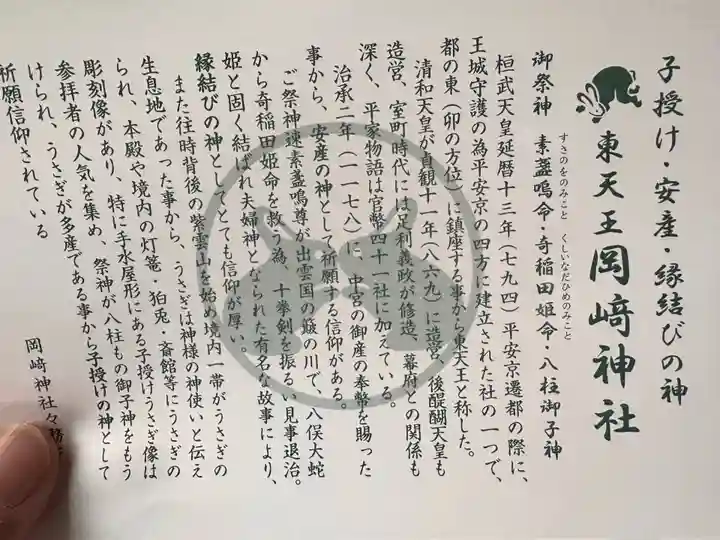 子授け・安産・縁結びの神
東天王岡﨑神社
すさのをのみこと くしいなだひめのみこと
御祭神 素盞嗚命・奇稲田姫命・八柱御子神
桓武天皇延暦十三年(七九四)平安京遷都の際に、
王城守護の為平安京の四方に建立された社の一つで、
都の東(卯の方位)に鎮座する事から東天王と称した。
清和天皇が貞観十一年(八六九)に造営、後醍醐天皇も
造営、室町時代には足利義政が修造、幕府との関係も
深く、平家物語は官幣四十一社に加えている。
治承二年(一一七八)に、中宮の御産の奉幣を賜った
事から、安産の神として祈願する信仰がある。
ご祭神速素盞嗚尊が出雲国の簸の川で、八俣大蛇
から奇稲田姫命を救う為、十拳剣を振るい見事退治。
姫と固く結ばれ夫婦神となられた有名な故事により、
縁結びの神としてとても信仰が厚い。
また往時背後の紫雲山を始め境内一帯がうさぎの
生息地であった事から、うさぎは神様の神使いと伝え
られ、本殿や境内の灯篭・狛兎・斎館等にうさぎの
彫刻像があり、特に手水屋形にある子授けうさぎ像は
参拝者の人気を集め、祭神が八柱もの御子神をもう
けられ、うさぎが多産である事から子授けの神として
祈願信仰されている
岡﨑神社々務